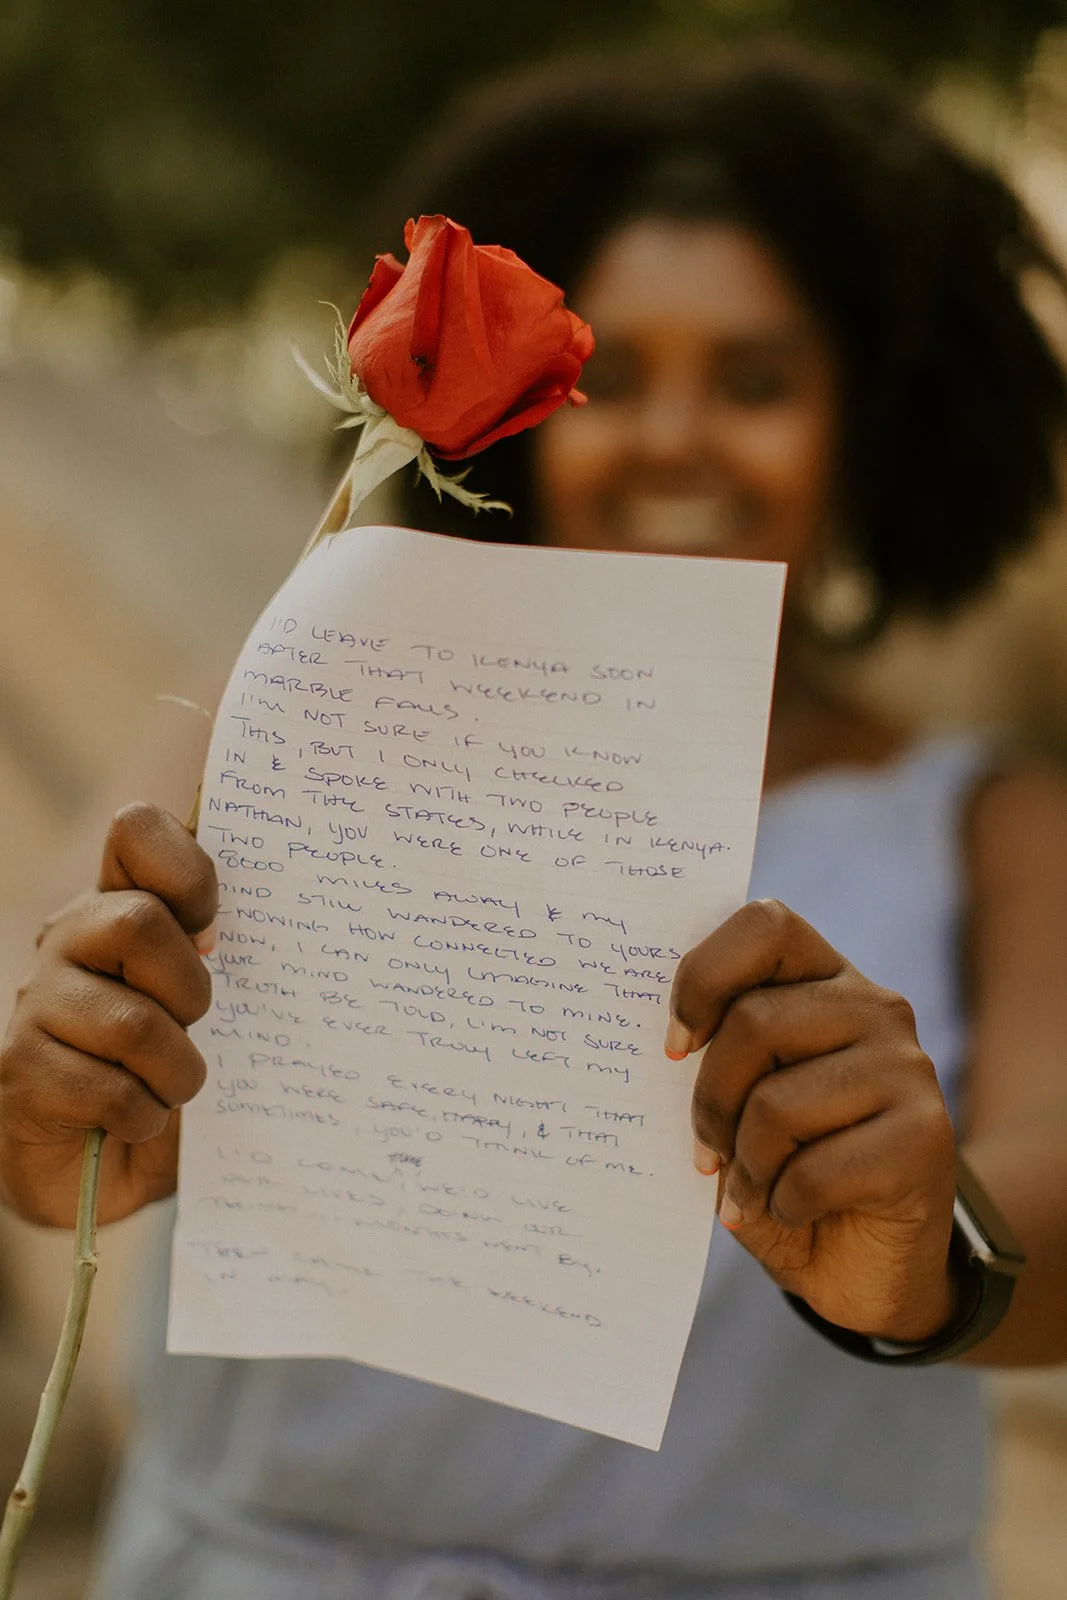 I'D LEAVE TO KENYA SOON
AFTER THAT WEEKEND IN
MARBLE FALLS.
I'M NOT SURE IF YOU KNOW
THIS, BUT I ONLY CHECKED
IN & SPOKE WITH TWO PEOPLE
FROM THE STATES, WHILE IN KENYA.
NATHAN, YOU WERE ONE OF THOSE
TWO PEOPLE.
8600 MILES AWAY & MY
MIND STILL WANDERED TO YOURS
KNOWING HOW CONNECTED WE ARE
NOW, I CAN ONLY IMAGINE THAT
YOUR MIND WANDERED TO MINE.
TRUTH BE TOLD, I'M NOT SURE
YOU'VE EVER TRULY LEFT MY
MIND.
I PRAYED EVERY NIGHT THAT
YOU WERE SAFE, HAPPY, & THAT
SOMETIMES, YOU'D THINK OF ME.
I'D COME WE'D LIVE
OUR LIVES, DOING OUR
THING. MONTHS WENT BY.
THEN CAME THE WEEKEND
IN MAY.